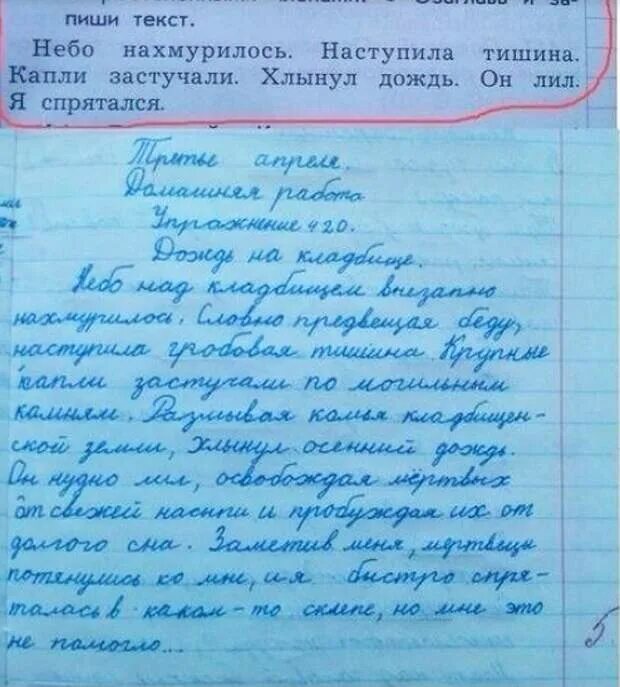 пиши текст.
Небо нахмурилось. Наступила тишина.
Капли застучали. Хлынул дождь. Он лил.
Я спрятался.
Третье апреля.
Домашняя работа
Упражнение 420.
Дождь на кладбище.
Небо над кладбищем внезапно
нахмурилось. Словно предвещая беду,
наступила гробовая тишина. Крупные
капли застучали по могильным
камням. Размывая комья кладбищен-
ской земли, хлынул осенний дождь.
Он нудно лил, освобождая мёртвых
от свежей насыпи и пробуждая их от
долгого сна. Заметив меня, мертвецы
потянулись ко мне, и я быстро спря-
талась в каком-то склепе, но мне это
не помогло...
5